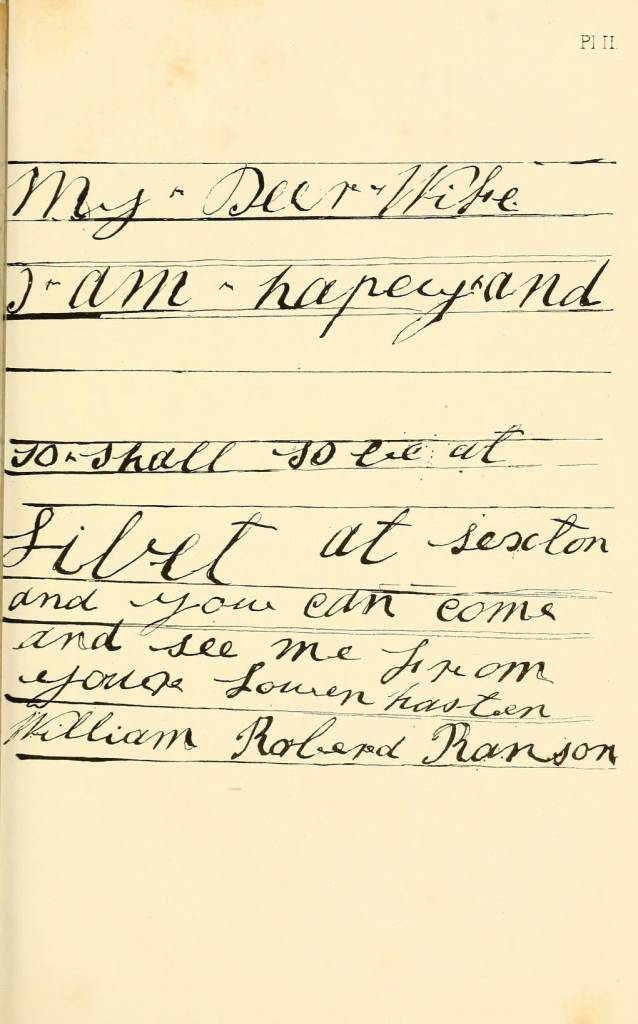 Pl II.
My - Deer - Wife
I - am - hapey and
so - shall so be at
Libet at sexton
and you can come
and see me from
youor Louen hasten
William Roberd Ranson